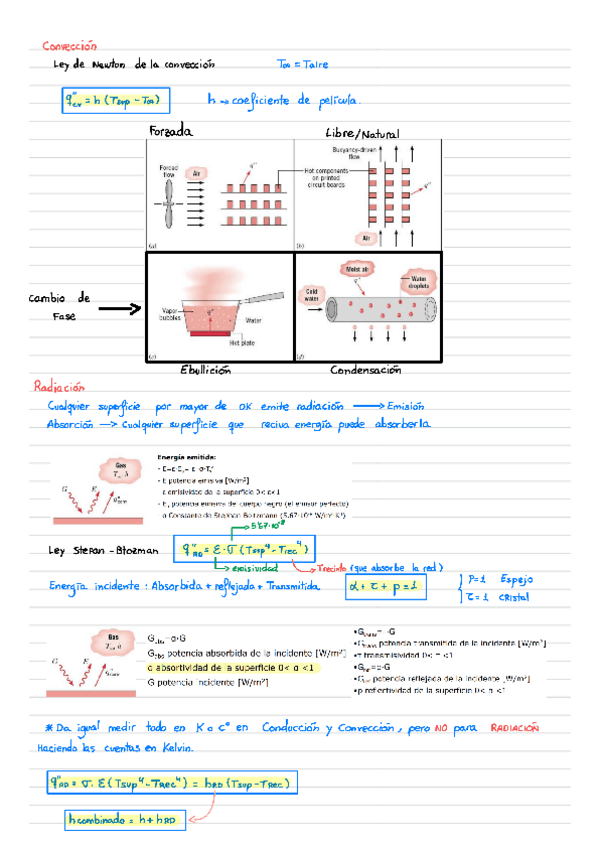 Convección
Ley de Newton de la convección T∞ = Taire
q"cv = h (Tsup - T∞) h → coeficiente de película.
Forzada Libre/Natural
Forced flow
Air
q"
Hot components on printed circuit boards
(a)
Buoyancy-driven flow
q"
Air
(b)
cambio de
Fase
Vapor bubbles
q"
Water
Hot plate
(c)
Moist air
q"
Cold water
Water droplets
(d)
Ebullición Condensación
Radiación
Cualquier superficie por mayor de 0K emite radiación → Emisión
Absorción → Cualquier superficie que reciva energía puede absorberla
Gas
T∞, h
G E q"conv
Energía emitida:
E potencia emisiva [W/m²]
ε emisividad de la superficie 0< ε<1
potencia emisiva de cuerpo negro (el emisor perfecto)
σ Constante de Stephan Boltzmann (5.67·10⁻⁸ W/m²·K⁴)
5'67·10⁻⁸
Ley Stefan - Btozman q"RD = ε·σ (Tsup⁴ - Trec⁴)
emisividad Trecinto (que absorbe la red)
Energía incidente : Absorbida + reflejada + Transmitida α + τ + ρ = 1
ρ=1 Espejo
τ=1 cristal
Gas
T∞, h
G E q"conv
Gabs=α·G
Gabs potencia absorbida de la incidente [W/m²]
α absortividad de la superficie 0< α <1
G potencia incidente [W/m²]
Gtrans potencia transmitida de la incidente [W/m²]
τ transmisividad 0< τ <1
potencia reflejada de la incidente [W/m²]
ρ reflectividad de la superficie 0< ρ <1
* Da igual medir todo en K o Cº en Conducción y Convección, pero NO para RADIACIÓN
Haciendo las cuentas en Kelvin.
q"RD = σ · ε (Tsup⁴ - Trec⁴) = hRD (Tsup - Trec)
hcombinado = h + hRD